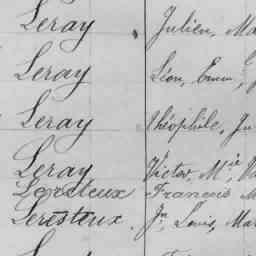 Leray Julien, Ma
Leray Léon, Emm
Leray Théophile, Ju
Leray Victor, M.ie
Leresteux Francois M
Leresteux Jn, Louis, Mar